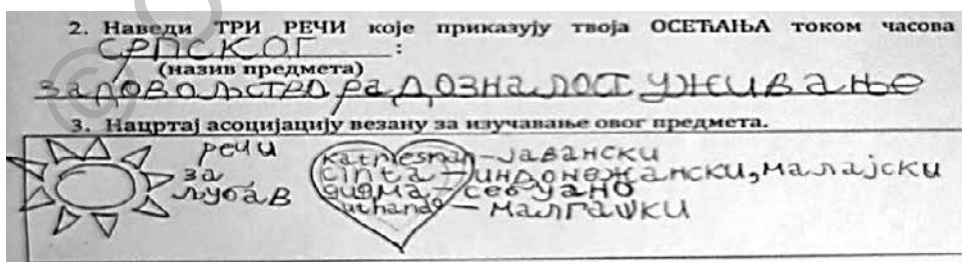 2. Наведи ТРИ РЕЧИ које приказују твоја ОСЕЋАЊА током часова
СРПСКОГ :
(назив предмета)
задовољство радозналост уживање
3. Нацртај асоцијацију везану за изучавање овог предмета.
речи
за
љубав
katresnan - јавански
cinta - индонежански, малајски
gugma - себуано
- малгашки